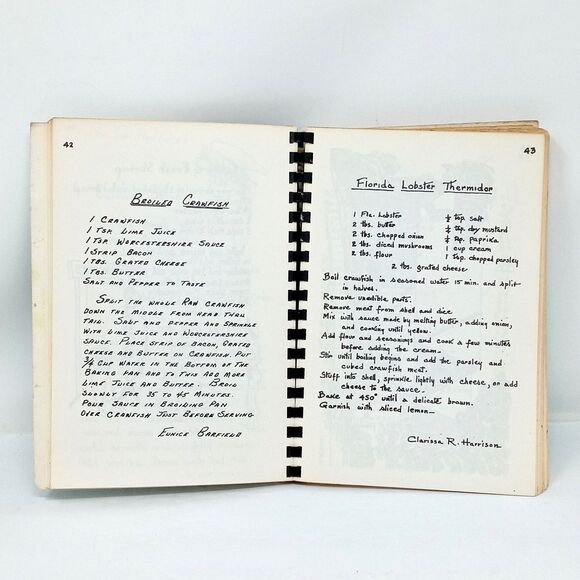 42
Broiled Crawfish
1 Crawfish
1 Tsp. Lime Juice
1 Tsp. Worcestershire Sauce
1 Strip Bacon
1 Tbs. Grated Cheese
1 Tbs. Butter
Salt and Pepper to Taste
Split the whole raw crawfish
down the middle from head thru
tail. Salt and pepper and sprinkle
with lime juice and Worcestershire
sauce. Place strip of bacon, grated
cheese and butter on crawfish. Put
3/4 cup water in the bottom of the
baking pan and to this add more
lime juice and butter. Broil
slowly for 35 to 45 minutes.
Pour sauce in broiling pan
over crawfish just before serving
Eunice Barfield
43
Florida Lobster Thermidor
1 Fla. Lobster
2 tbs. butter
2 tbs. chopped onion
2 tbs. diced mushrooms
2 tbs. flour
tsp. salt
tsp. dry mustard
tsp. paprika
1 cup cream
1 tsp. chopped parsley
2 tbs. grated cheese
Boil crawfish in seasoned water 15 min. and split
in halves.
Remove inedible parts.
Remove meat from shell and dice
Mix with sauce made by melting butter, adding onion,
and cooking until yellow.
Add flour and seasonings and cook a few minutes
before adding the cream.
Stir until boiling begins and add the parsley and
cubed crawfish meat.
Stuff into shell, sprinkle lightly with cheese, or add
cheese to the sauce.
Bake at 450° until a delicate brown.
Garnish with sliced lemon—
Clarissa R. Harrison